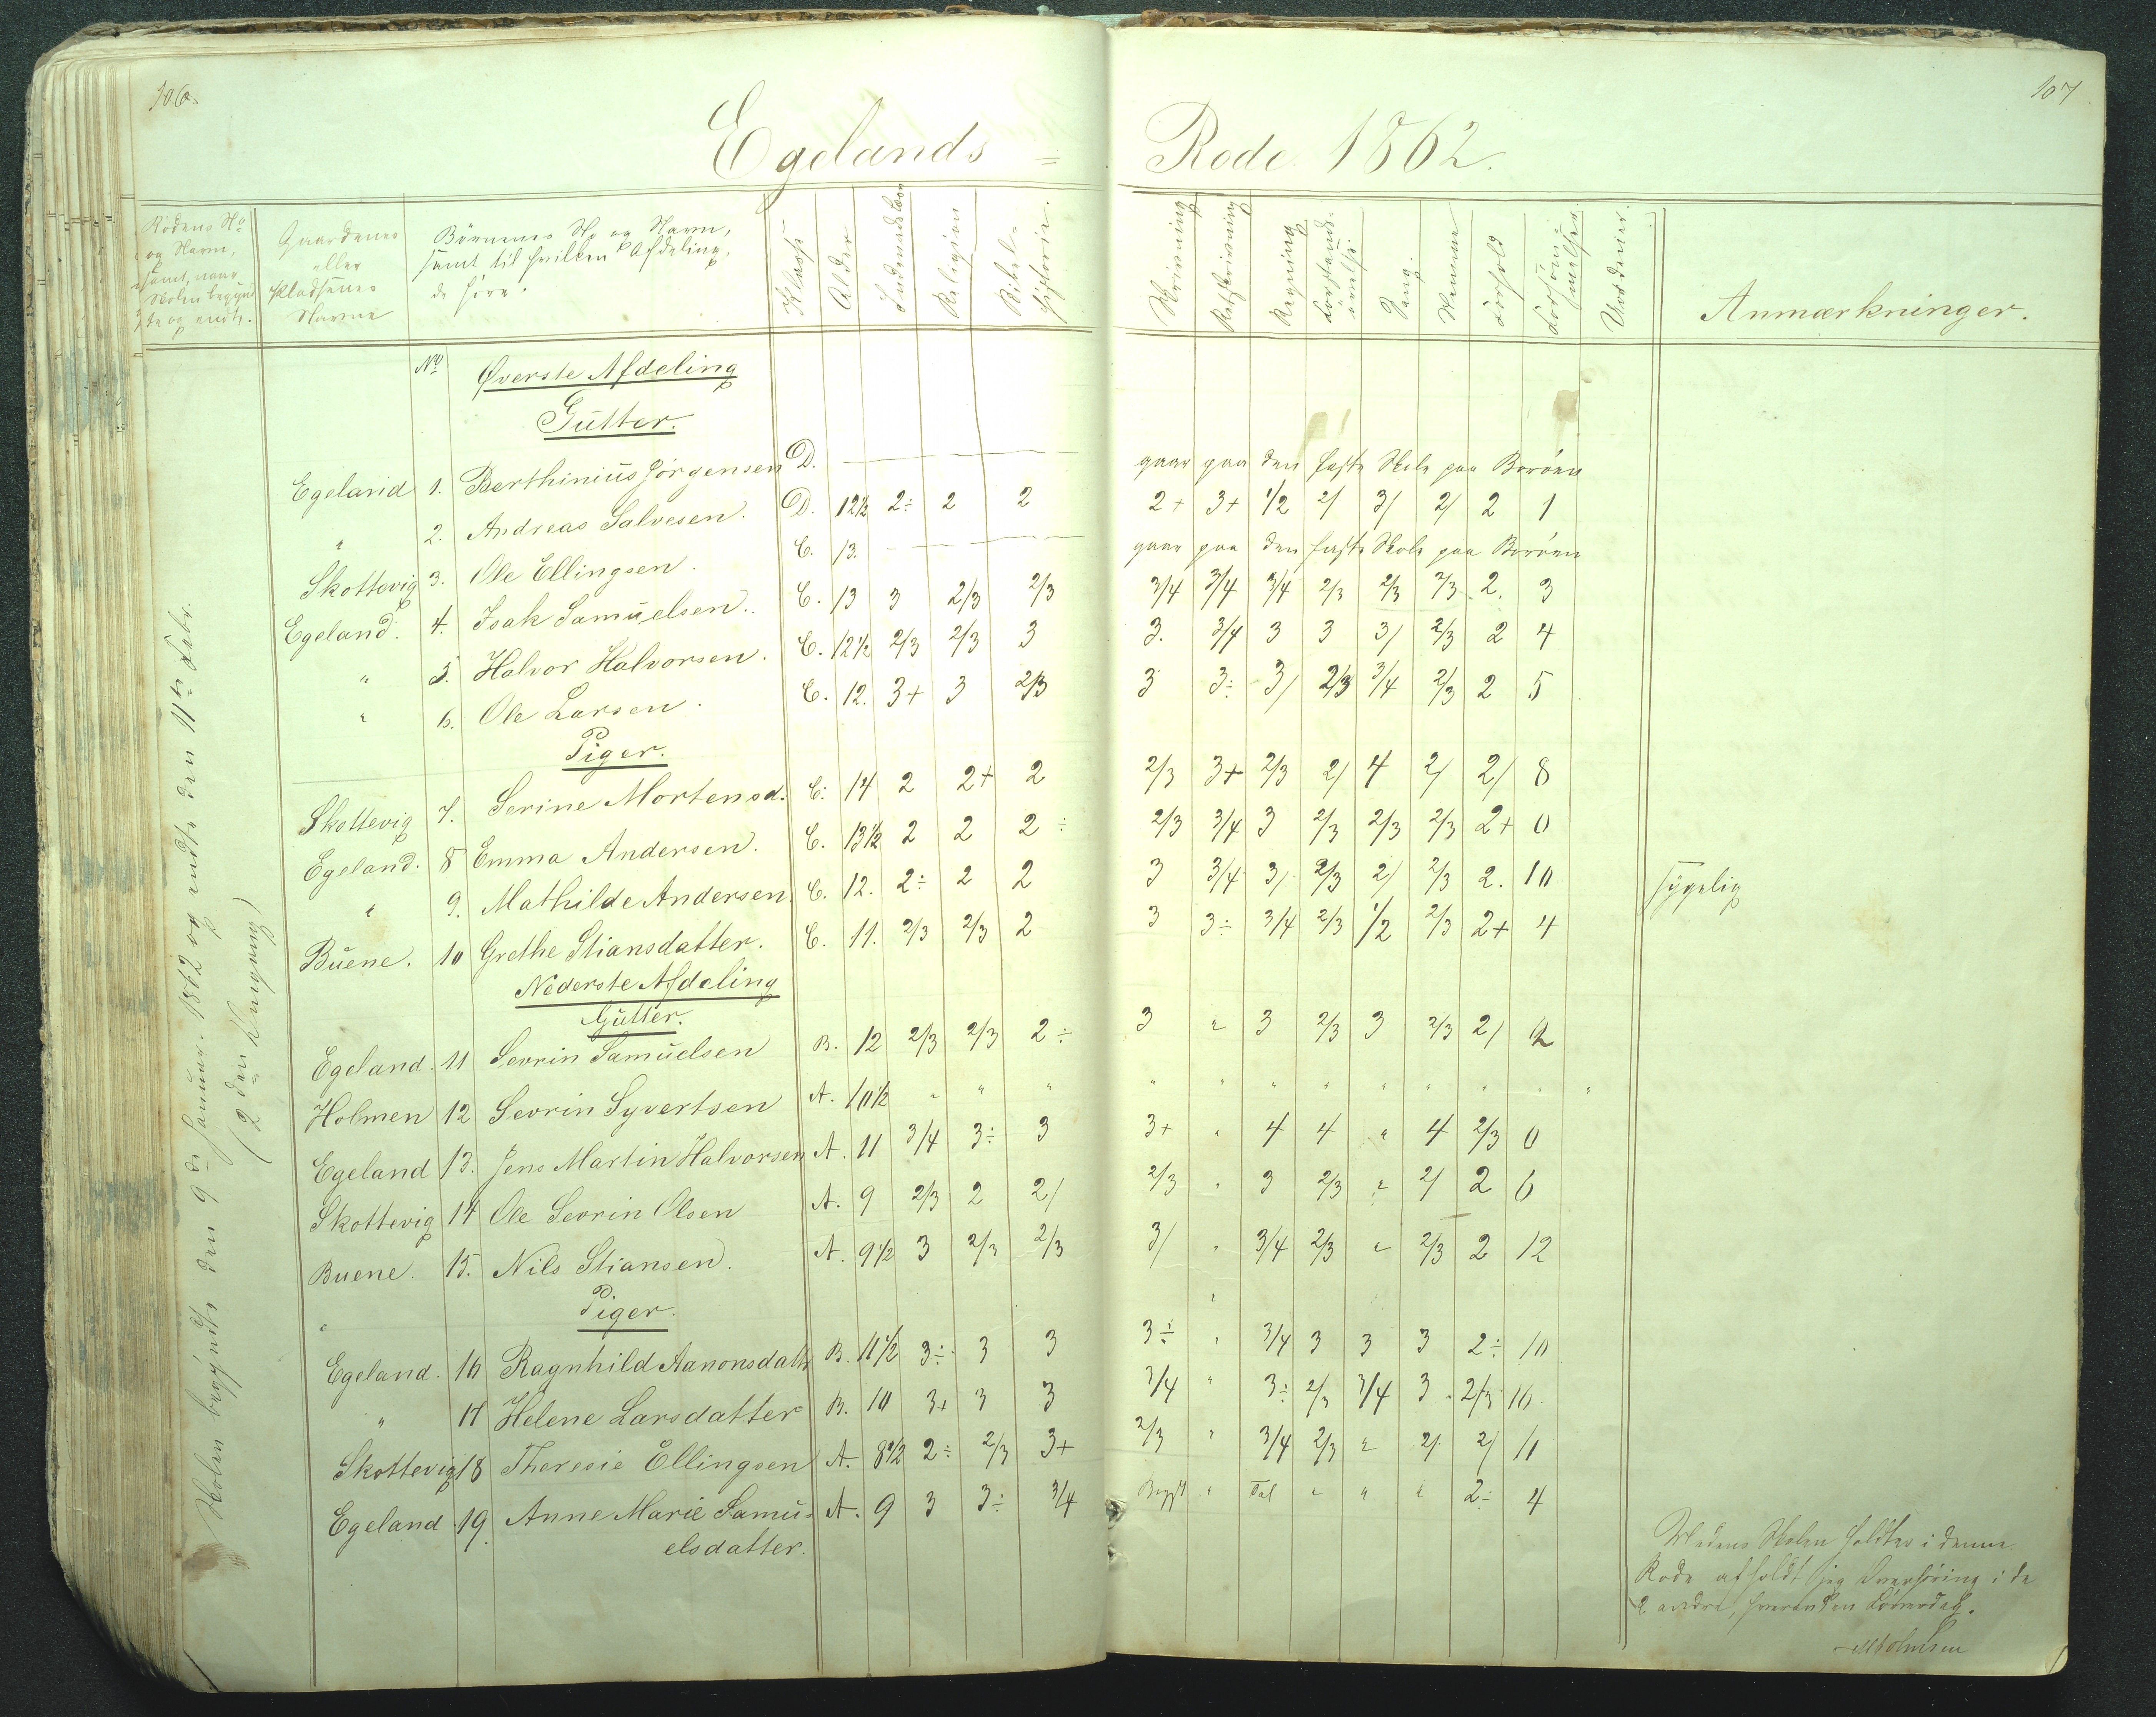 106.
107
Egelands = Rode 1862.
Rodens No og Navn, samt, naar Skolen begyndte og endte.
Gaardenes eller Pladsenes Navne
Børnenes No og Navn, samt til hvilken Afdeling, de høre.
Klasse
Alder
Indenadslæsn
Religion
Bibel-historie.
Skrivning
Retskrivning
Regning
Forstands-øvelse.
Sang.
Nemme
Forhold
Forsømmelser
Anmærkninger.
No
Øverste Afdeling
Gutter.
Egeland 1. Berthinius Jörgensen D. gaar paa den faste Skole paa Boröen
" 2. Andreas Salvesen. D. 12½ 2÷ 2 2 2+ 3+ 1/2 2/ 3/ 2/ 2 1
Skottevig 3. Ole Ellingsen. C. 13. gaar paa den faste Skole paa Boröen
Egeland. 4. Isak Samuelsen. C. 13 3 2/3 2/3 3/4 3/4 3/4 2/3 2/3 2/3 2. 3
" 5. Halvor Halvorsen. C. 12½ 2/3 2/3 3 3. 3/4 3 3 3/ 2/3 2 4
" 6. Ole Larsen. C. 12. 3+ 3 2/3 3 3÷ 3/ 2/3 3/4 2/3 2 5
Piger.
Skottevig 7. Serine Mortensd. C. 14 2 2+ 2 2/3 3+ 2/3 2/ 4 2/ 2/ 8
Egeland. 8 Emma Andersen. C. 13½ 2 2 2÷ 2/3 3/4 3 2/3 2/3 2/3 2+ 0
" 9. Mathilde Andersen. C. 12. 2÷ 2 2 3 3/4 3/ 2/3 2/ 2/3 2. 10 sygelig
Buene. 10 Grethe Stiansdatter. C. 11. 2/3 2/3 2 3 3÷ 3/4 2/3 1/2 2/3 2+ 4
Nederste Afdeling
Gutter.
Egeland. 11 Sevrin Samuelsen B. 12 2/3 2/3 2÷ 3 " 3 2/3 3 2/3 2/
Holmen 12 Sevrin Syvertsen A. 10½ " " " " " " " " " " "
Egeland 13. Jens Martin Halvorsen A. 11 3/4 3÷ 3 3+ " 4 4 " 4 2/3 0
Skottevig 14 Ole Sevrin Olsen A. 9 2/3 2 2/ 2/3 " 3 2/3 " 2/ 2 6
Buene. 15. Nils Stiansen. A. 9½ 3 2/3 2/3 3/ " 3/4 2/3 " 2/3 2 12
Piger.
Egeland. 16 Ragnhild Aanonsdatt B. 11½ 3÷ 3 3 3÷ " 3/4 3 3 3 2÷ 10
" 17 Helene Larsdatter B. 10 3+ 3 3 3/4 " 3÷ 2/3 3/4 3 2/3 10.
Skottevig 18 Theresie Ellingsen A. 8½ 2÷ 2/3 3+ 2/3 " 3/4 2/3 " 2/ 2/ 11
Egeland 19. Anne Marie Samu- A. 9 3 3÷ 3/4 Begyt " Tal " " " 2÷ 4
elsdatter.
Skolen begyndte den 9de Januar 1862 og endte den 11te Febr.
(2den Omgang)
Medens Skolen holdtes i denne
Rode afholdt jeg Overhöring i de
2 andre, hveranden Löverdag.